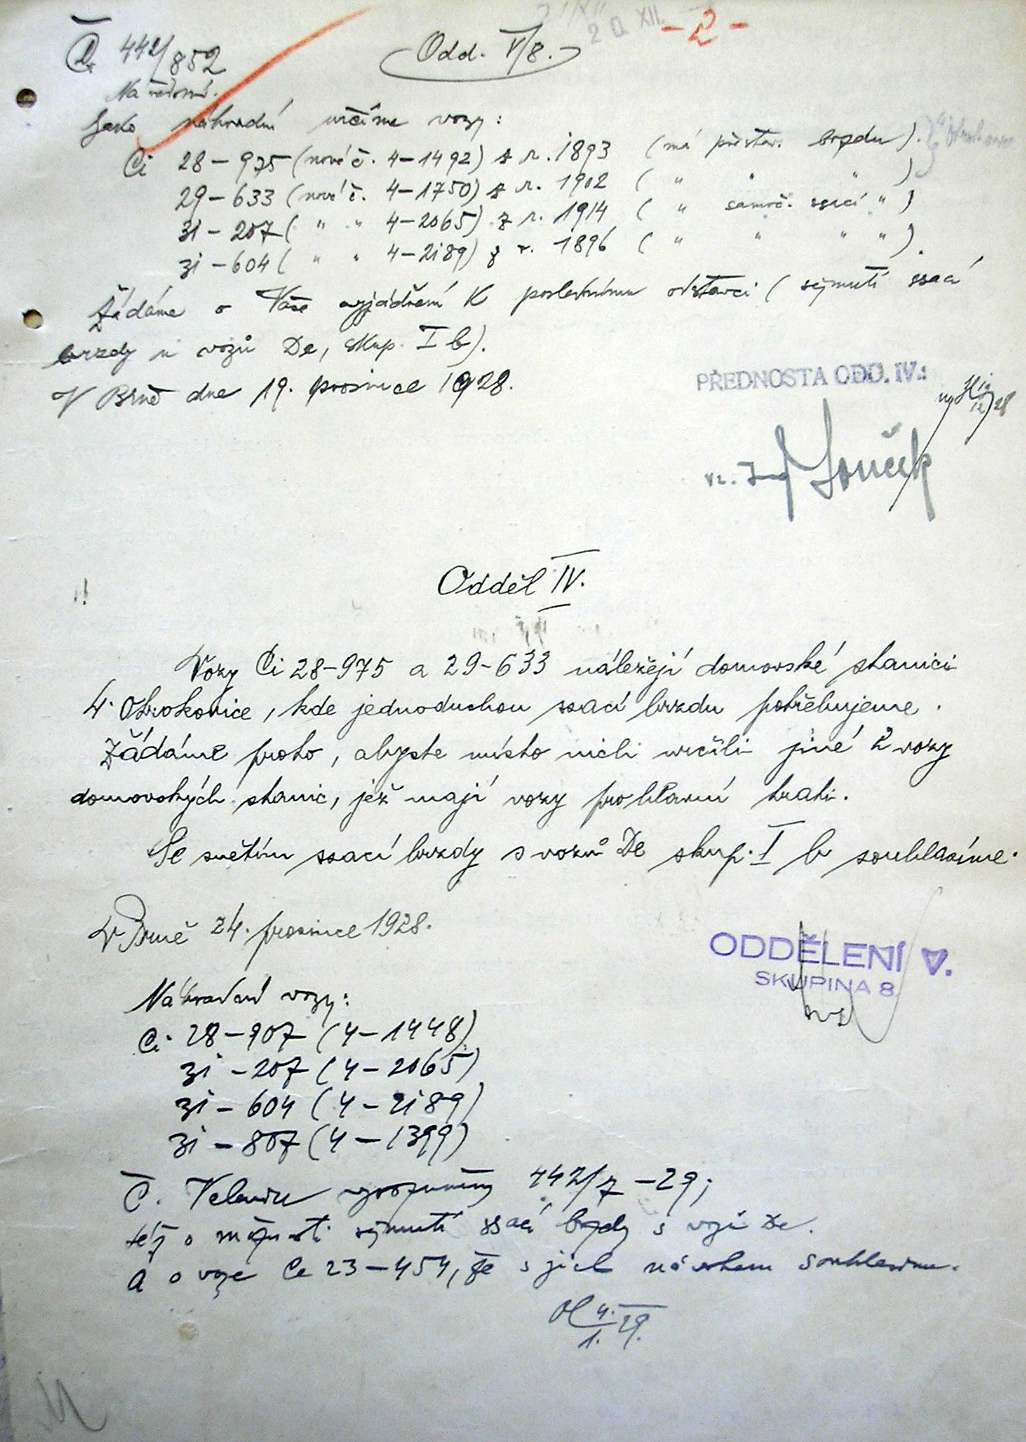 20. XII.
-2-
Č. 442/852
Odd. V/8.
Jako náhradní určíme vozy:
Ci 28-975 (nové č. 4-1492) z r. 1893 (má přestav. brzdu).
29-633 (nové č. 4-1750) z r. 1902 ( " " " )
31-207 ( " " 4-2065) z r. 1914 ( " samoč. ssací " )
31-604 ( " " 4-2189) z r. 1896 ( " " " " ).
Žádáme o Vaše vyjádření k poslednímu odstavci (sejmutí ssací
brzdy u vozů De, skup. I b).
V Brně dne 19. prosince 1928.
PŘEDNOSTA ODD. IV.:
vz. Ing Souček
Odděl IV.
Vozy Ci 28-975 a 29-633 náležejí domovské stanici
4. Otrokovice, kde jednoduchou ssací brzdu potřebujeme.
Žádáme proto, abyste místo nich určili jiné 2 vozy
domovských stanic, jež mají vozy pro hlavní trati.
Se snětím ssací brzdy s vozů De skup. I b souhlasíme.
V Brně 24. prosince 1928.
ODDĚLENÍ V.
SKUPINA 8.
Náhradní vozy:
Ci 28-907 (4-1448)
31-207 (4-2065)
31-604 (4-2189)
31-807 (4-1399)
Č. Velenice vyrozuměny 442/7-29;
též o možnosti sejmutí ssací brzdy s vozů De.
A o voze Ce 23-454, že s jich návrhem souhlasíme.
4./1. 29.